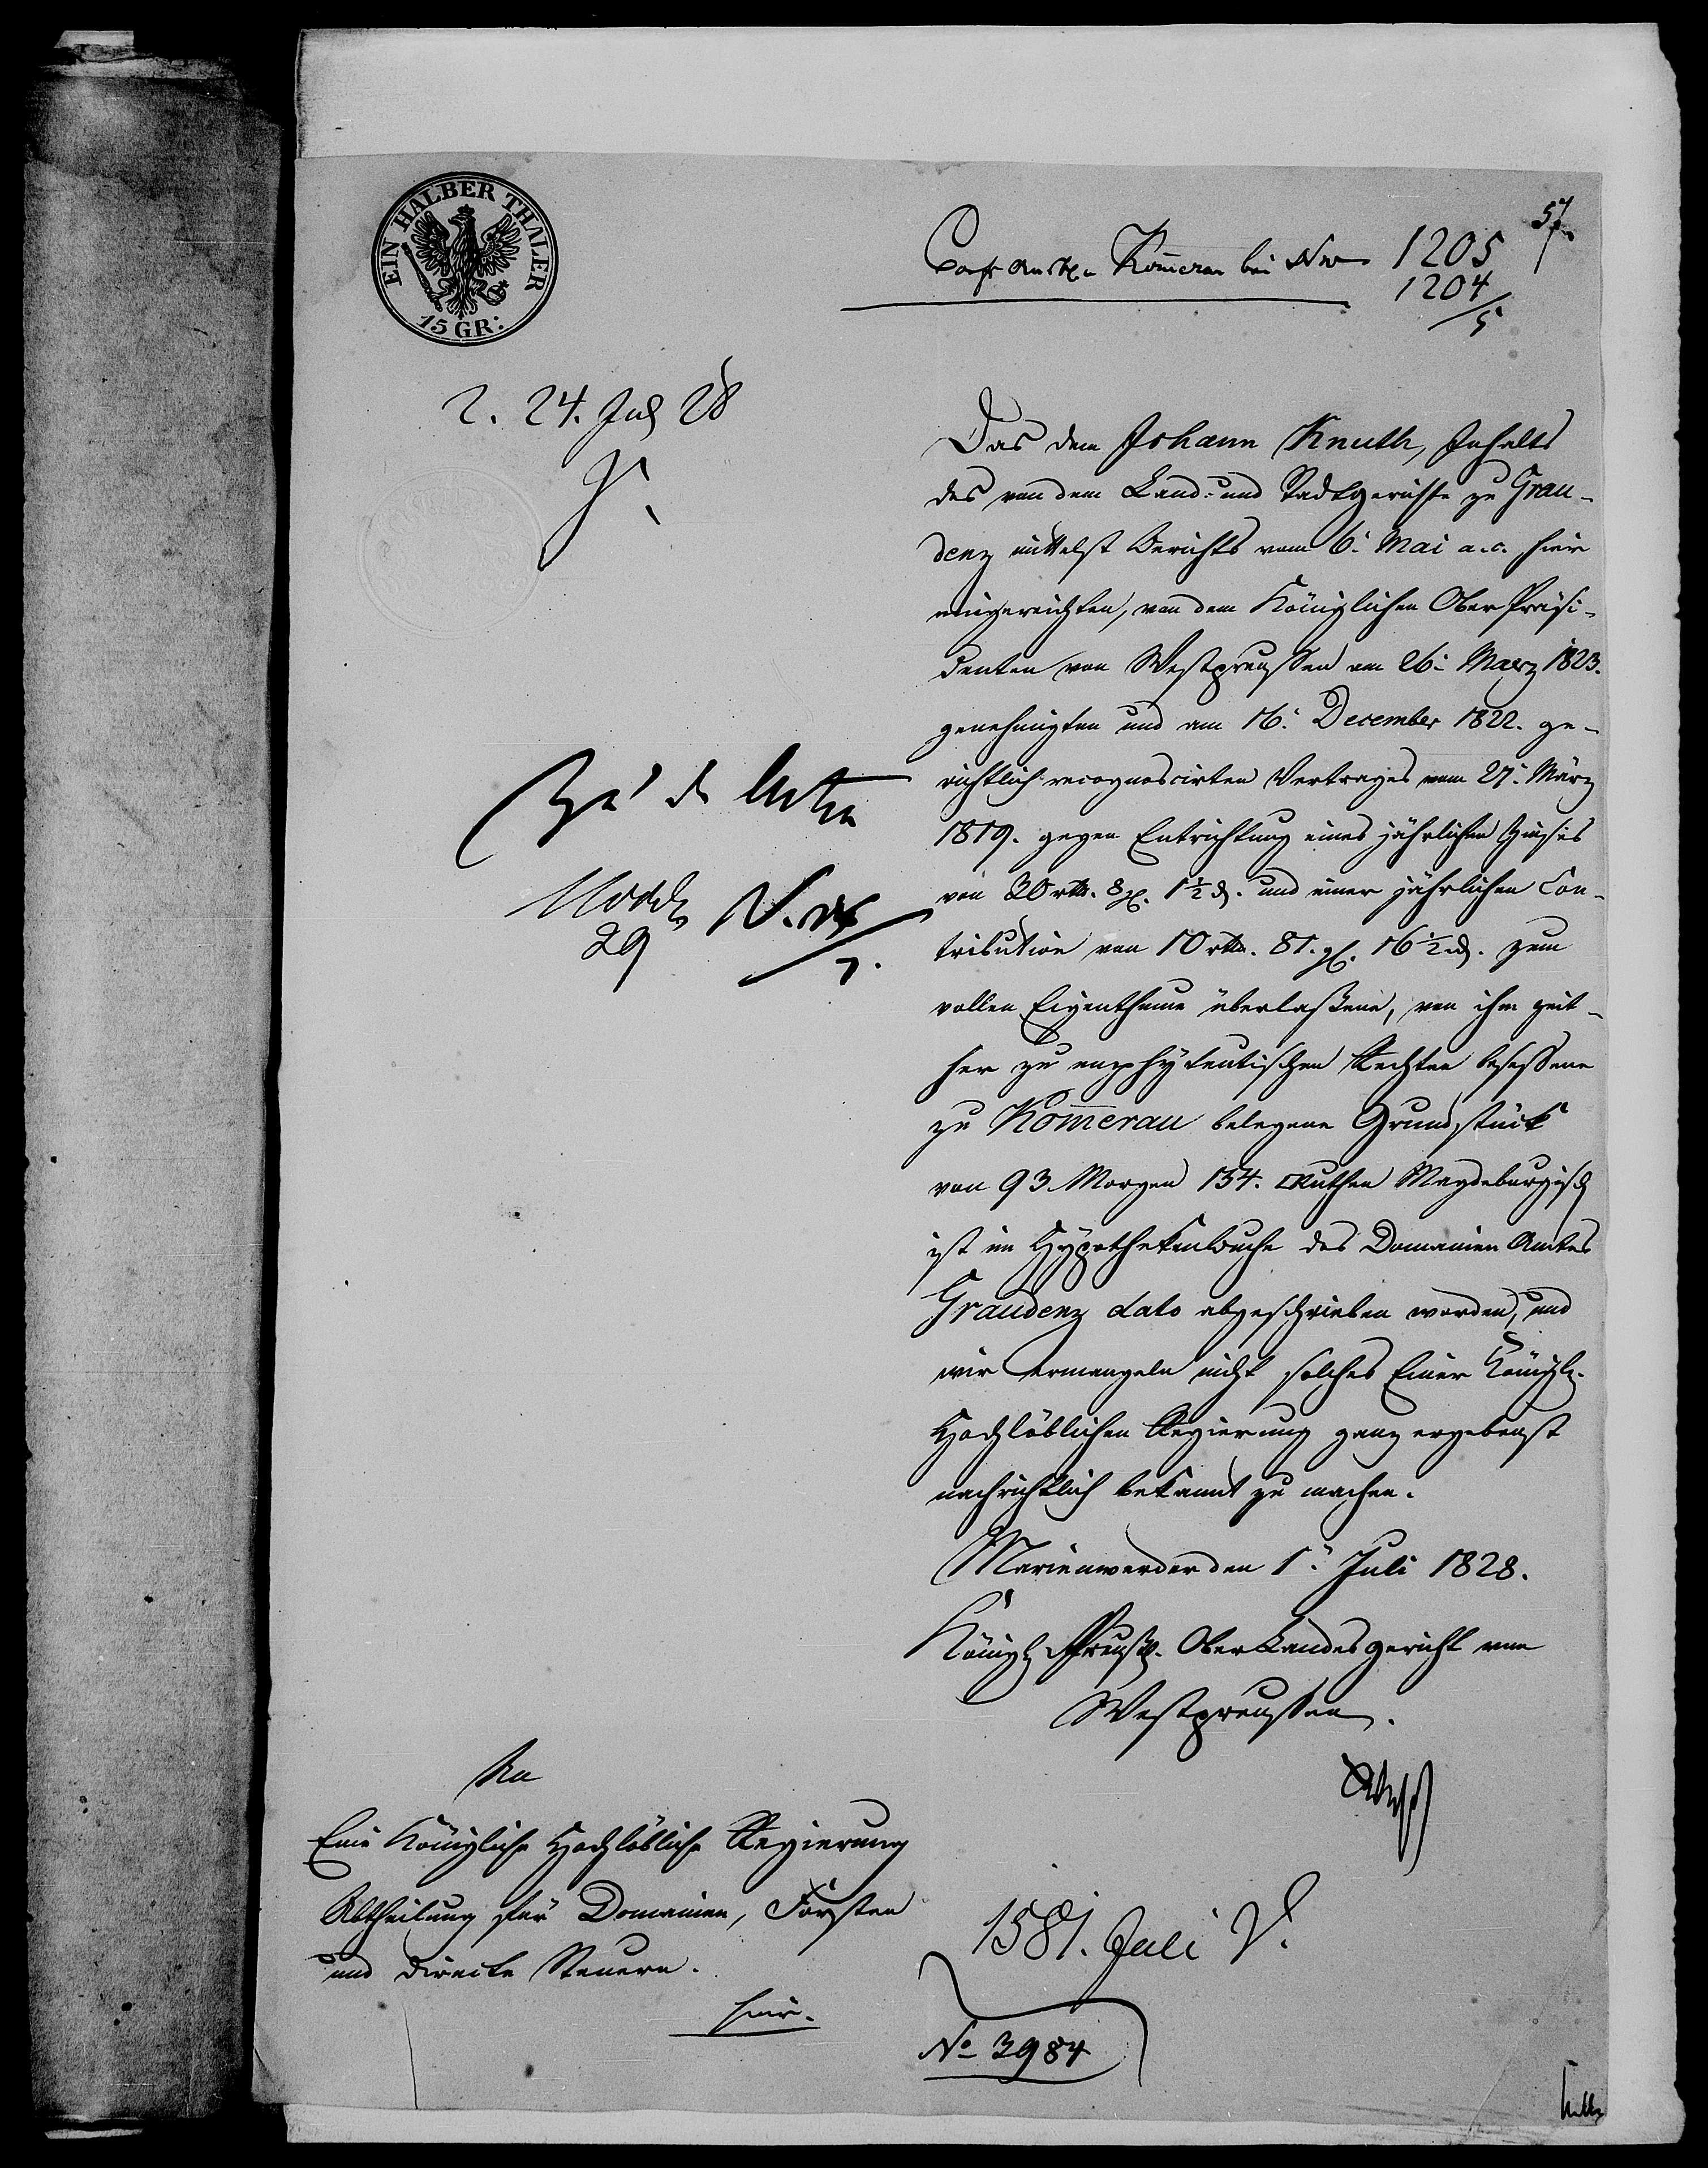 EIN HALBER THALER
15 GR:
57
Komerau bei No 1205
1204/5
24. July 28
Das dem Johann Knuth, Inhalts
des von dem Land- und Stadtgerichte zu Grau-
denz mittelst Berichts vom 6. Mai a. c. hier
eingereichten, von dem Königlichen Ober Präsi-
denten von Westpreussen am 26. Maerz 1823.
genehmigten und am 16. December 1822. ge-
richtlich recognoscirten Vertrages vom 27. März
1819. gegen Entrichtung eines jährlichen Zinses
von 30 rtlr. 8 gl. 1½ d. und einer jährlichen Con-
tribution von 10 rtlr. 81. gl. 16½ d. zum
vollen Eigenthume überlaßene, von ihm zeit-
her zu emphyteutischen Rechten besessene
zu Kom̄erau belegene Grundstück
von 93 Morgen 134. □Ruthen Magdeburgisch
ist im Hypothekenbuche des Domainen Amtes
Graudenz dato abgeschrieben worden, und
wir ermangeln nicht solches Einer Königl.
Hochlöblichen Regierung ganz ergebenst
nachrichtlich bekannt zu machen.
Marienwerder den 1. Juli 1828.
Königl. Preuß. Ober Landesgericht von
Westpreussen.
zu d. Acten
29
An
Eine Königliche Hochlöbliche Regierung
Abtheilung für Domainen, Forsten
und directe Steuern.
hier.
1581. Juli
No 3984